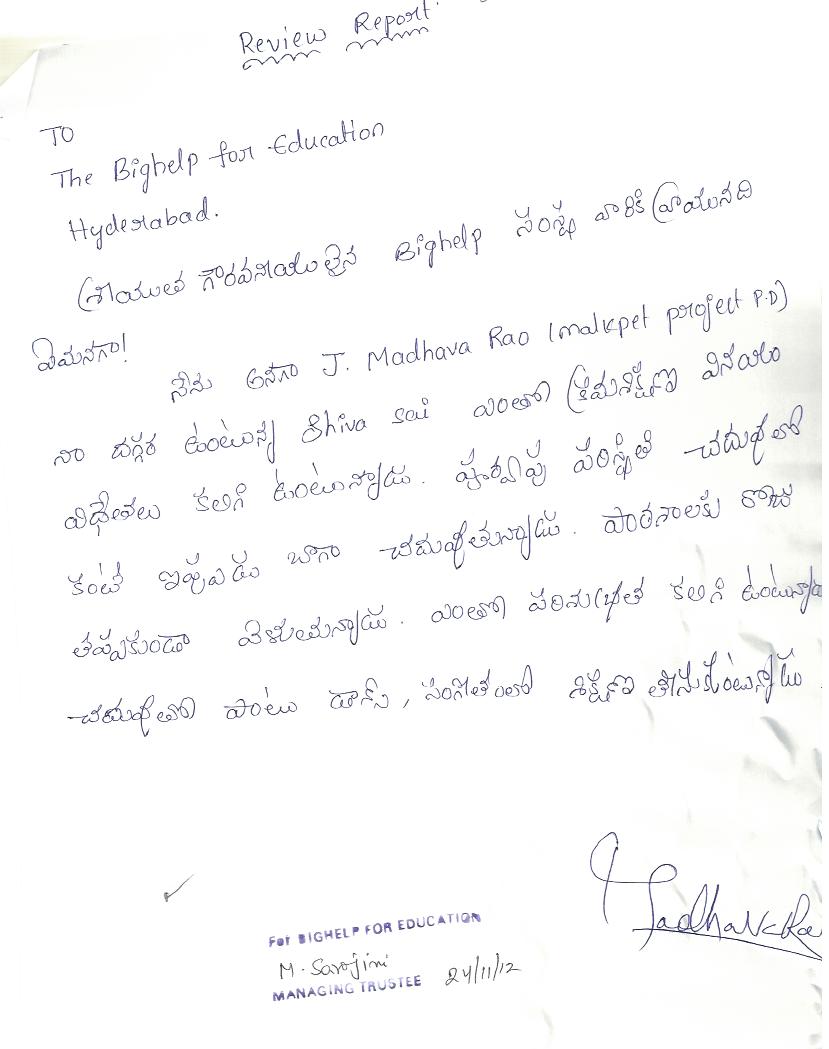 Review Report
TO
The Bighelp for Education
Hyderabad.
శ్రీయుత గౌరవనీయులైన Bighelp సంస్థ వారికి వ్రాయునది
ఏమనగా!
నేను అనగా J. Madhava Rao (malkpet project P.D)
నా దగ్గర ఉంటున్న Shiva sai ఎంతో క్రమశిక్షణ వినయం
విధేతలు కలిగి ఉంటున్నాడు. పూర్వపు పరిస్థితి చదువులో
కంటే ఇప్పుడు బాగా చదువుతున్నాడు. పాఠశాలకు రోజు
తప్పకుండా వెళుతున్నాడు. ఎంతో పరిశుభ్రత కలిగి ఉంటున్నాడు
చదువుతో పాటు డాన్స్, సంగీతంలో శిక్షణ తీసుకుంటున్నాడు
Madhava Rao
For BIGHELP FOR EDUCATION
M. Sarojini
MANAGING TRUSTEE 24/11/12